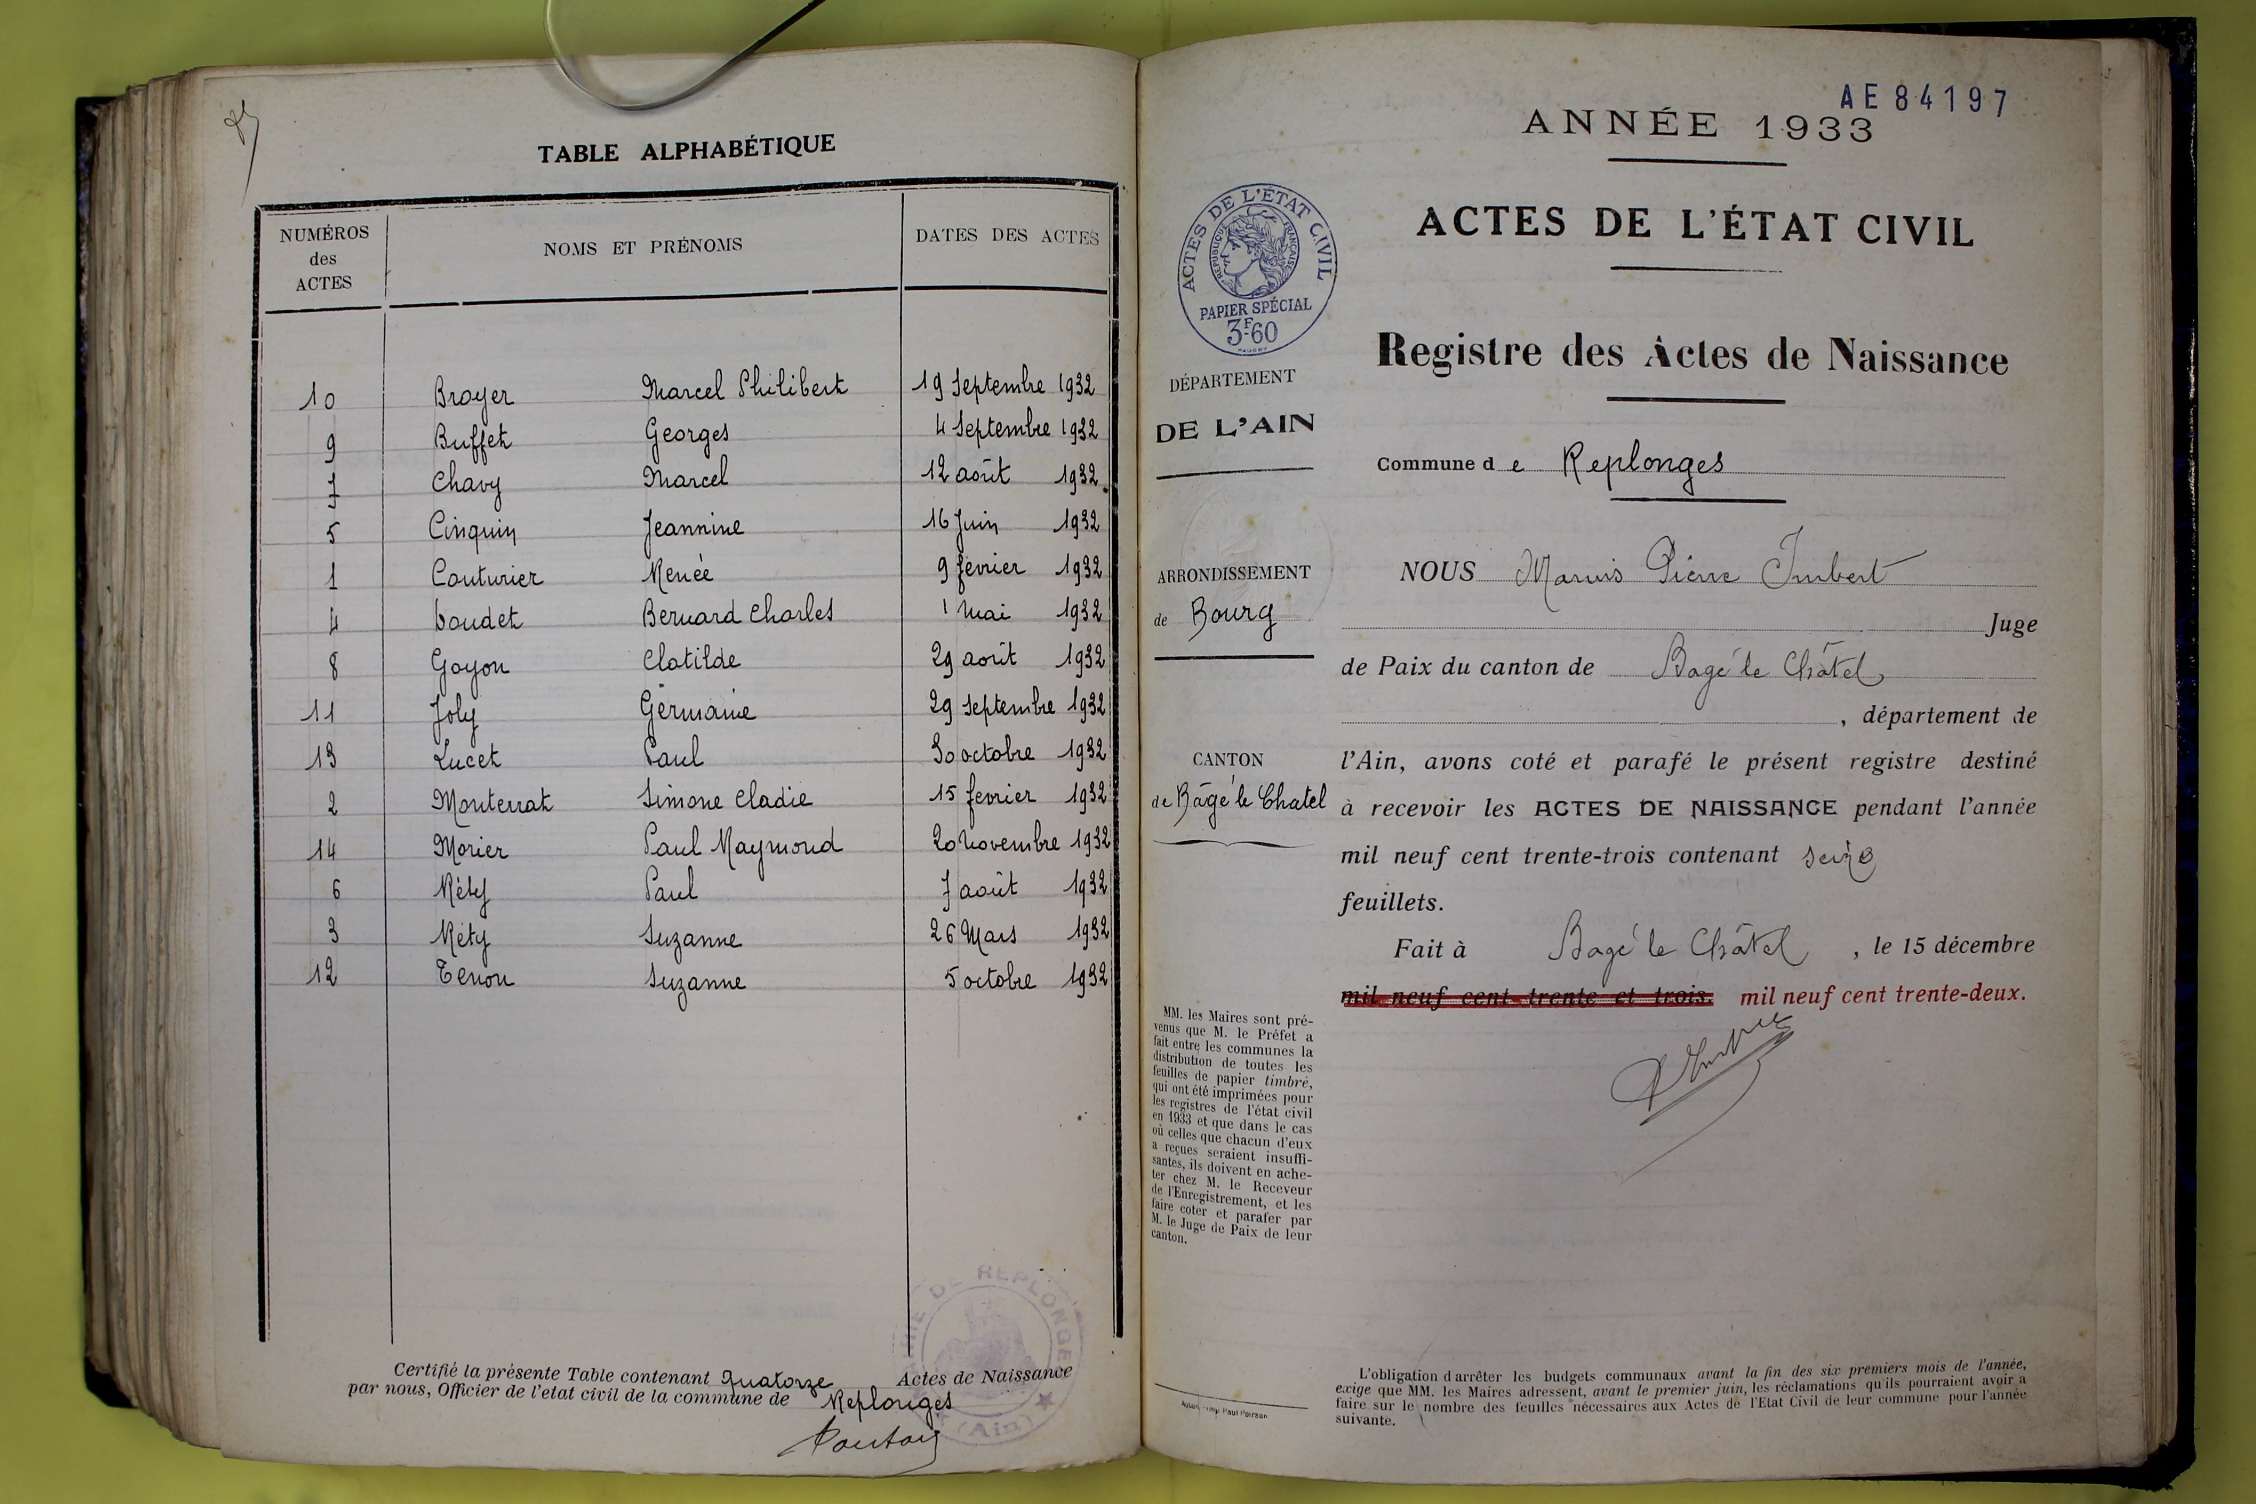 TABLE ALPHABÉTIQUE
NUMÉROS des ACTES NOMS ET PRÉNOMS DATES DES ACTES
10 Broyer Marcel Philibert 19 Septembre 1932
9 Buffet Georges 4 Septembre 1932
7 Chavy Marcel 12 août 1932
5 Cinquin Jeannine 16 Juin 1932
1 Couturier Renée 9 fevrier 1932
4 Bernard Charles 1 Mai 1932
8 Goyon Clotilde 29 août 1932
11 Joly Germaine 29 Septembre 1932
13 Lucet Paul 30 octobre 1932
2 Monterrat Simone Cladie 15 fevrier 1932
14 Morier Paul Raymond 20 Novembre 1932
6 Réty Paul 7 août 1932
3 Réty Suzanne 26 Mars 1932
12 Tenon Suzanne 5 octobre 1932
Certifié la présente Table contenant Quatorze Actes de Naissance
par nous, Officier de l'etat civil de la commune de Replonges
MAIRIE DE REPLONGES
(Ain)
AE84197
ANNÉE 1933
ACTES DE L'ÉTAT CIVIL
Registre des Actes de Naissance
Commune d e Replonges
ACTES DE L'ÉTAT CIVIL
RÉPUBLIQUE FRANÇAISE
PAPIER SPÉCIAL
3F60
DÉPARTEMENT
DE L'AIN
ARRONDISSEMENT
de Bourg
CANTON
de Bâgé le Chatel
MM. les Maires sont pré-
venus que M. le Préfet a
fait entre les communes la
distribution de toutes les
feuilles de papier timbré,
qui ont été imprimées pour
les registres de l'état civil
en 1933 et que dans le cas
où celles que chacun d'eux
a reçues seraient insuffi-
santes, ils doivent en ache-
ter chez M. le Receveur
de l'Enregistrement, et les
faire coter et parafer par
M. le Juge de Paix de leur
canton.
NOUS Marius Pierre Imbert
Juge
de Paix du canton de Bagé le Châtel
, département de
l'Ain, avons coté et parafé le présent registre destiné
à recevoir les ACTES DE NAISSANCE pendant l'année
mil neuf cent trente-trois contenant seize
feuillets.
Fait à Bagé le Châtel , le 15 décembre
mil neuf cent trente et trois. mil neuf cent trente-deux.
L'obligation d'arrêter les budgets communaux avant la fin des six premiers mois de l'année,
exige que MM. les Maires adressent, avant le premier juin, les réclamations qu'ils pourraient avoir à
faire sur le nombre des feuilles nécessaires aux Actes de l'Etat Civil de leur commune pour l'année
suivante.